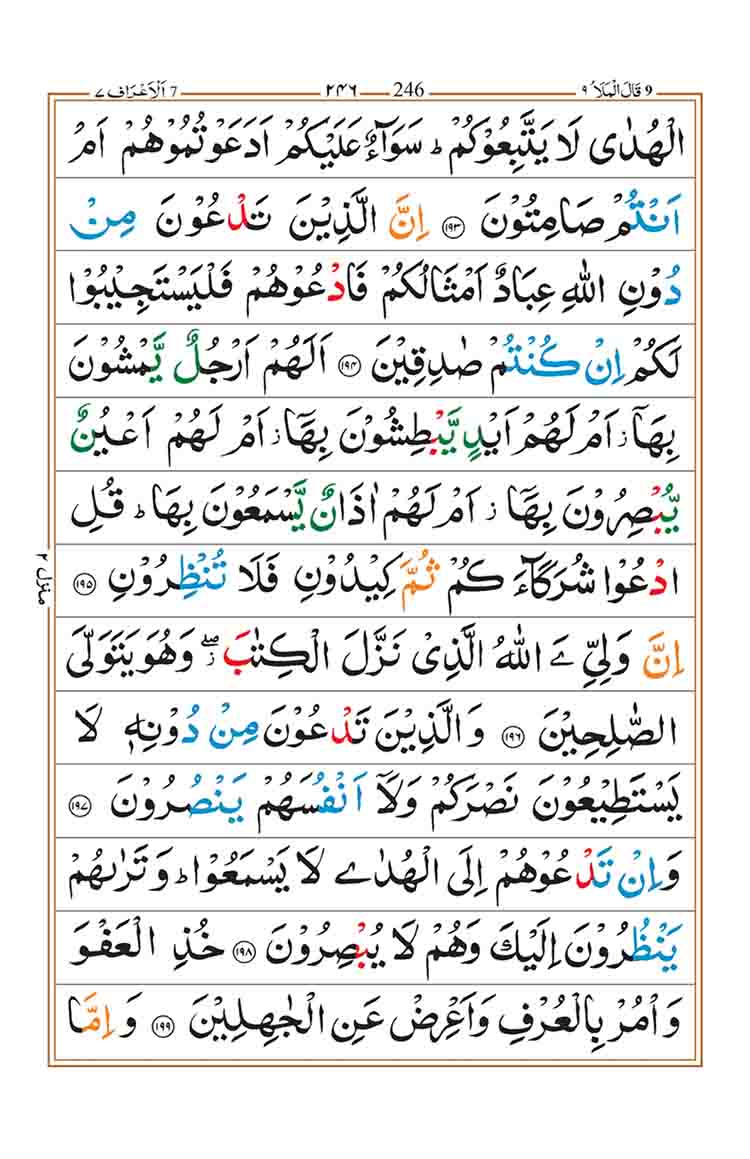 ٩ قَالَ الْمَلَاُ 9 246 ٢٤٦ 7 اَلْاَعْرَاف ٧
الْهُدٰى لَا يَتَّبِعُوْكُمْ ؕ سَوَآءٌ عَلَيْكُمْ اَدَعَوْتُمُوْهُمْ اَمْ
اَنْتُمْ صَامِتُوْنَ ﴿۱۹۳﴾ اِنَّ الَّذِيْنَ تَدْعُوْنَ مِنْ
دُوْنِ اللّٰهِ عِبَادٌ اَمْثَالُكُمْ فَادْعُوْهُمْ فَلْيَسْتَجِيْبُوْا
لَكُمْ اِنْ كُنْتُمْ صٰدِقِيْنَ ﴿۱۹۴﴾ اَلَهُمْ اَرْجُلٌ يَّمْشُوْنَ
بِهَاۤ ز اَمْ لَهُمْ اَيْدٍ يَّبْطِشُوْنَ بِهَاۤ ز اَمْ لَهُمْ اَعْيُنٌ
يُّبْصِرُوْنَ بِهَاۤ ز اَمْ لَهُمْ اٰذَانٌ يَّسْمَعُوْنَ بِهَا ؕ قُلِ
ادْعُوْا شُرَكَآءَ كُمْ ثُمَّ كِيْدُوْنِ فَلَا تُنْظِرُوْنِ ﴿۱۹۵﴾
اِنَّ وَلِيِّ ےَ اللّٰهُ الَّذِىْ نَزَّلَ الْكِتٰبَ ۖز وَهُوَ يَتَوَلَّى
الصّٰلِحِيْنَ ﴿۱۹۶﴾ وَالَّذِيْنَ تَدْعُوْنَ مِنْ دُوْنِهٖ لَا
يَسْتَطِيْعُوْنَ نَصْرَكُمْ وَلَاۤ اَنْفُسَهُمْ يَنْصُرُوْنَ ﴿۱۹۷﴾
وَاِنْ تَدْعُوْهُمْ اِلَى الْهُدٰے لَا يَسْمَعُوْا ؕ وَتَرٰٮهُمْ
يَنْظُرُوْنَ اِلَيْكَ وَهُمْ لَا يُبْصِرُوْنَ ﴿۱۹۸﴾ خُذِ الْعَفْوَ
وَاْمُرْ بِالْعُرْفِ وَاَعْرِضْ عَنِ الْجٰهِلِيْنَ ﴿۱۹۹﴾ وَاِمَّا
منزل ٢